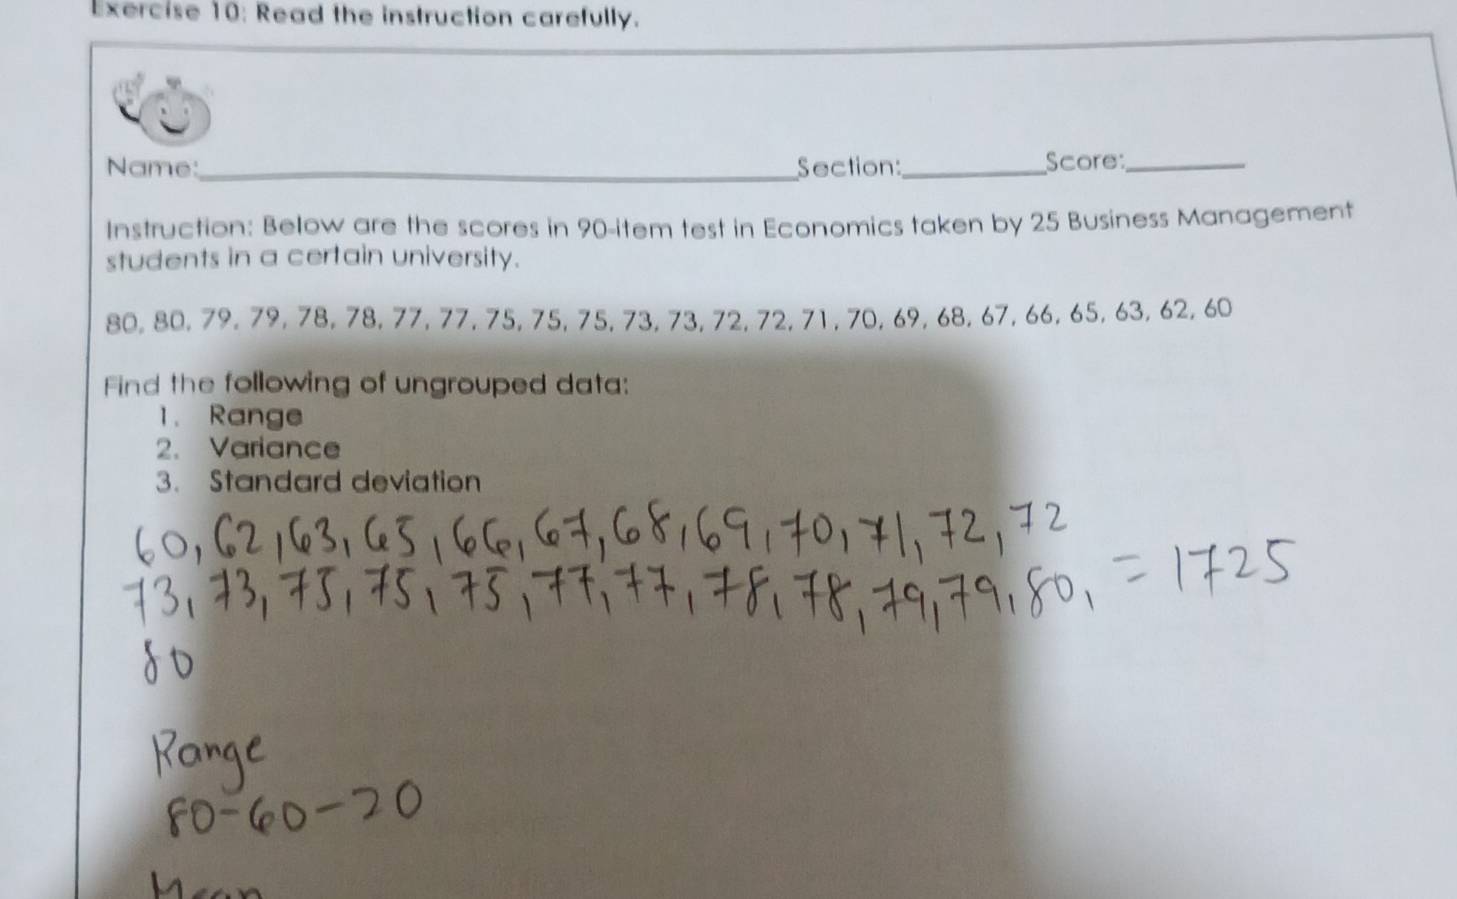 Exercise 10: Read the instruction carefully.
Name:____ Section:____ Score:____
Instruction: Below are the scores in 90-item test in Economics taken by 25 Business Management
students in a certain university.
80, 80, 79, 79, 78, 78, 77, 77, 75, 75, 75, 73, 73, 72, 72, 71, 70, 69, 68, 67, 66, 65, 63, 62, 60
Find the following of ungrouped data:
1. Range
2. Variance
3. Standard deviation
60, 62, 63, 65, 66, 67, 68, 69, 70, 71, 72, 72
73, 73, 75, 75, 75, 77, 77, 78, 78, 79, 79, 80, = 1725
80
Range
80-60-20
Mean